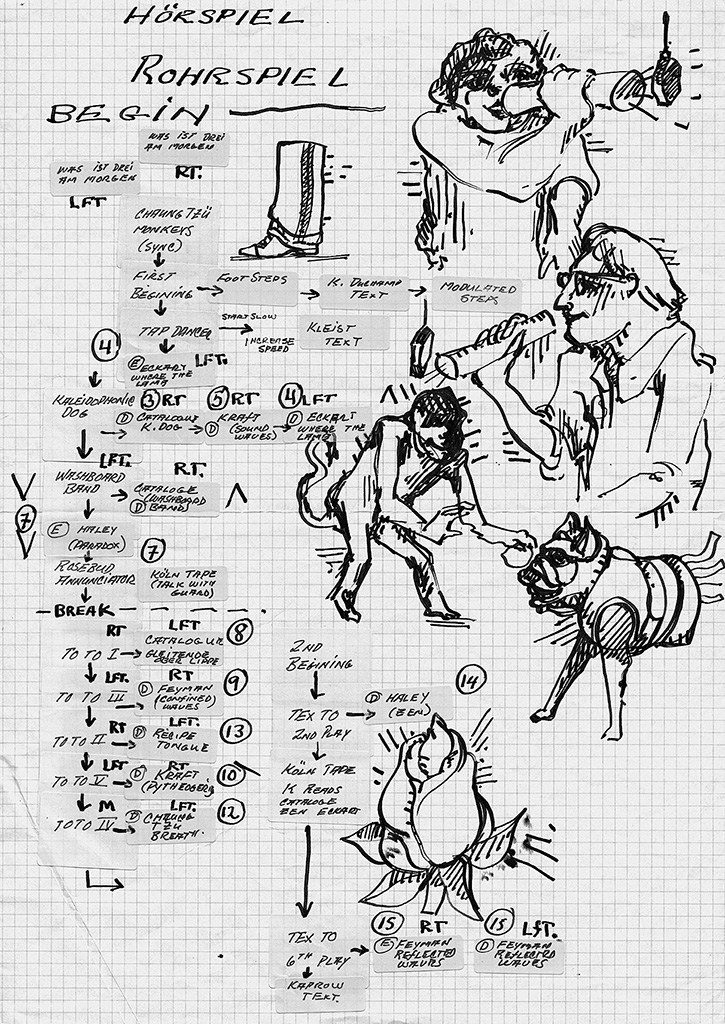 HÖRSPIEL
ROHRSPIEL
BEGIN
WAS IST DREI
AM MORGEN
RT.
WAS IST DREI
AM MORGEN
LFT
CHAUNG TZÜ
MONKEYS
(SYNC)
FIRST
BEGINING
FOOT STEPS
K. DUCHAMP
TEXT
MODULATED
STEPS
TAP DANCER
START SLOW
INCREASE
SPEED
KLEIST
TEXT
4
E ECKART LFT.
WHERE THE
LAMB
KALEIDOPHONIC
DOG
3 RT
D CATALOGUE
K. DOG
5 RT
D KRAFT
(SOUND
WAVES)
4 LFT
D ECKERT
WHERE THE
LAMB
LFT.
WASHBOARD
BAND
RT.
CATALOGE
(WASHBOARD
D BAND)
7
E HALEY
(PARADOX)
7
ROSEBUD
ANNUNCIATOR
KÖLN TAPE
(TALK WITH
GUARD)
BREAK
RT
TO TO I
LFT
CATALOGUE
GLEITENDE
ÜBER LIPPE
8
LFT.
TO TO III
RT
D FEYMAN
(CONFINED
WAVES)
9
RT
TOTO II
LFT.
D RECIPE
TONGUE
13
LFT
TO TO V
RT
D KRAFT
(PYTHEOGER)
10
M
TOTO IV
LFT.
D CHAUNG
TZU
BREATH.
12
2ND
BEGINING
TEX TO
2ND PLAY
D HALEY
(ZEN)
14
KÖLN TAPE
K READS
CATALOGE
ZEN ECKART
TEX TO
6TH PLAY
15 RT
E FEYMAN
REFLECTED
WAVES
15 LFT.
D FEYMAN
REFLECTED
WAVES
KAPROW
TEXT.